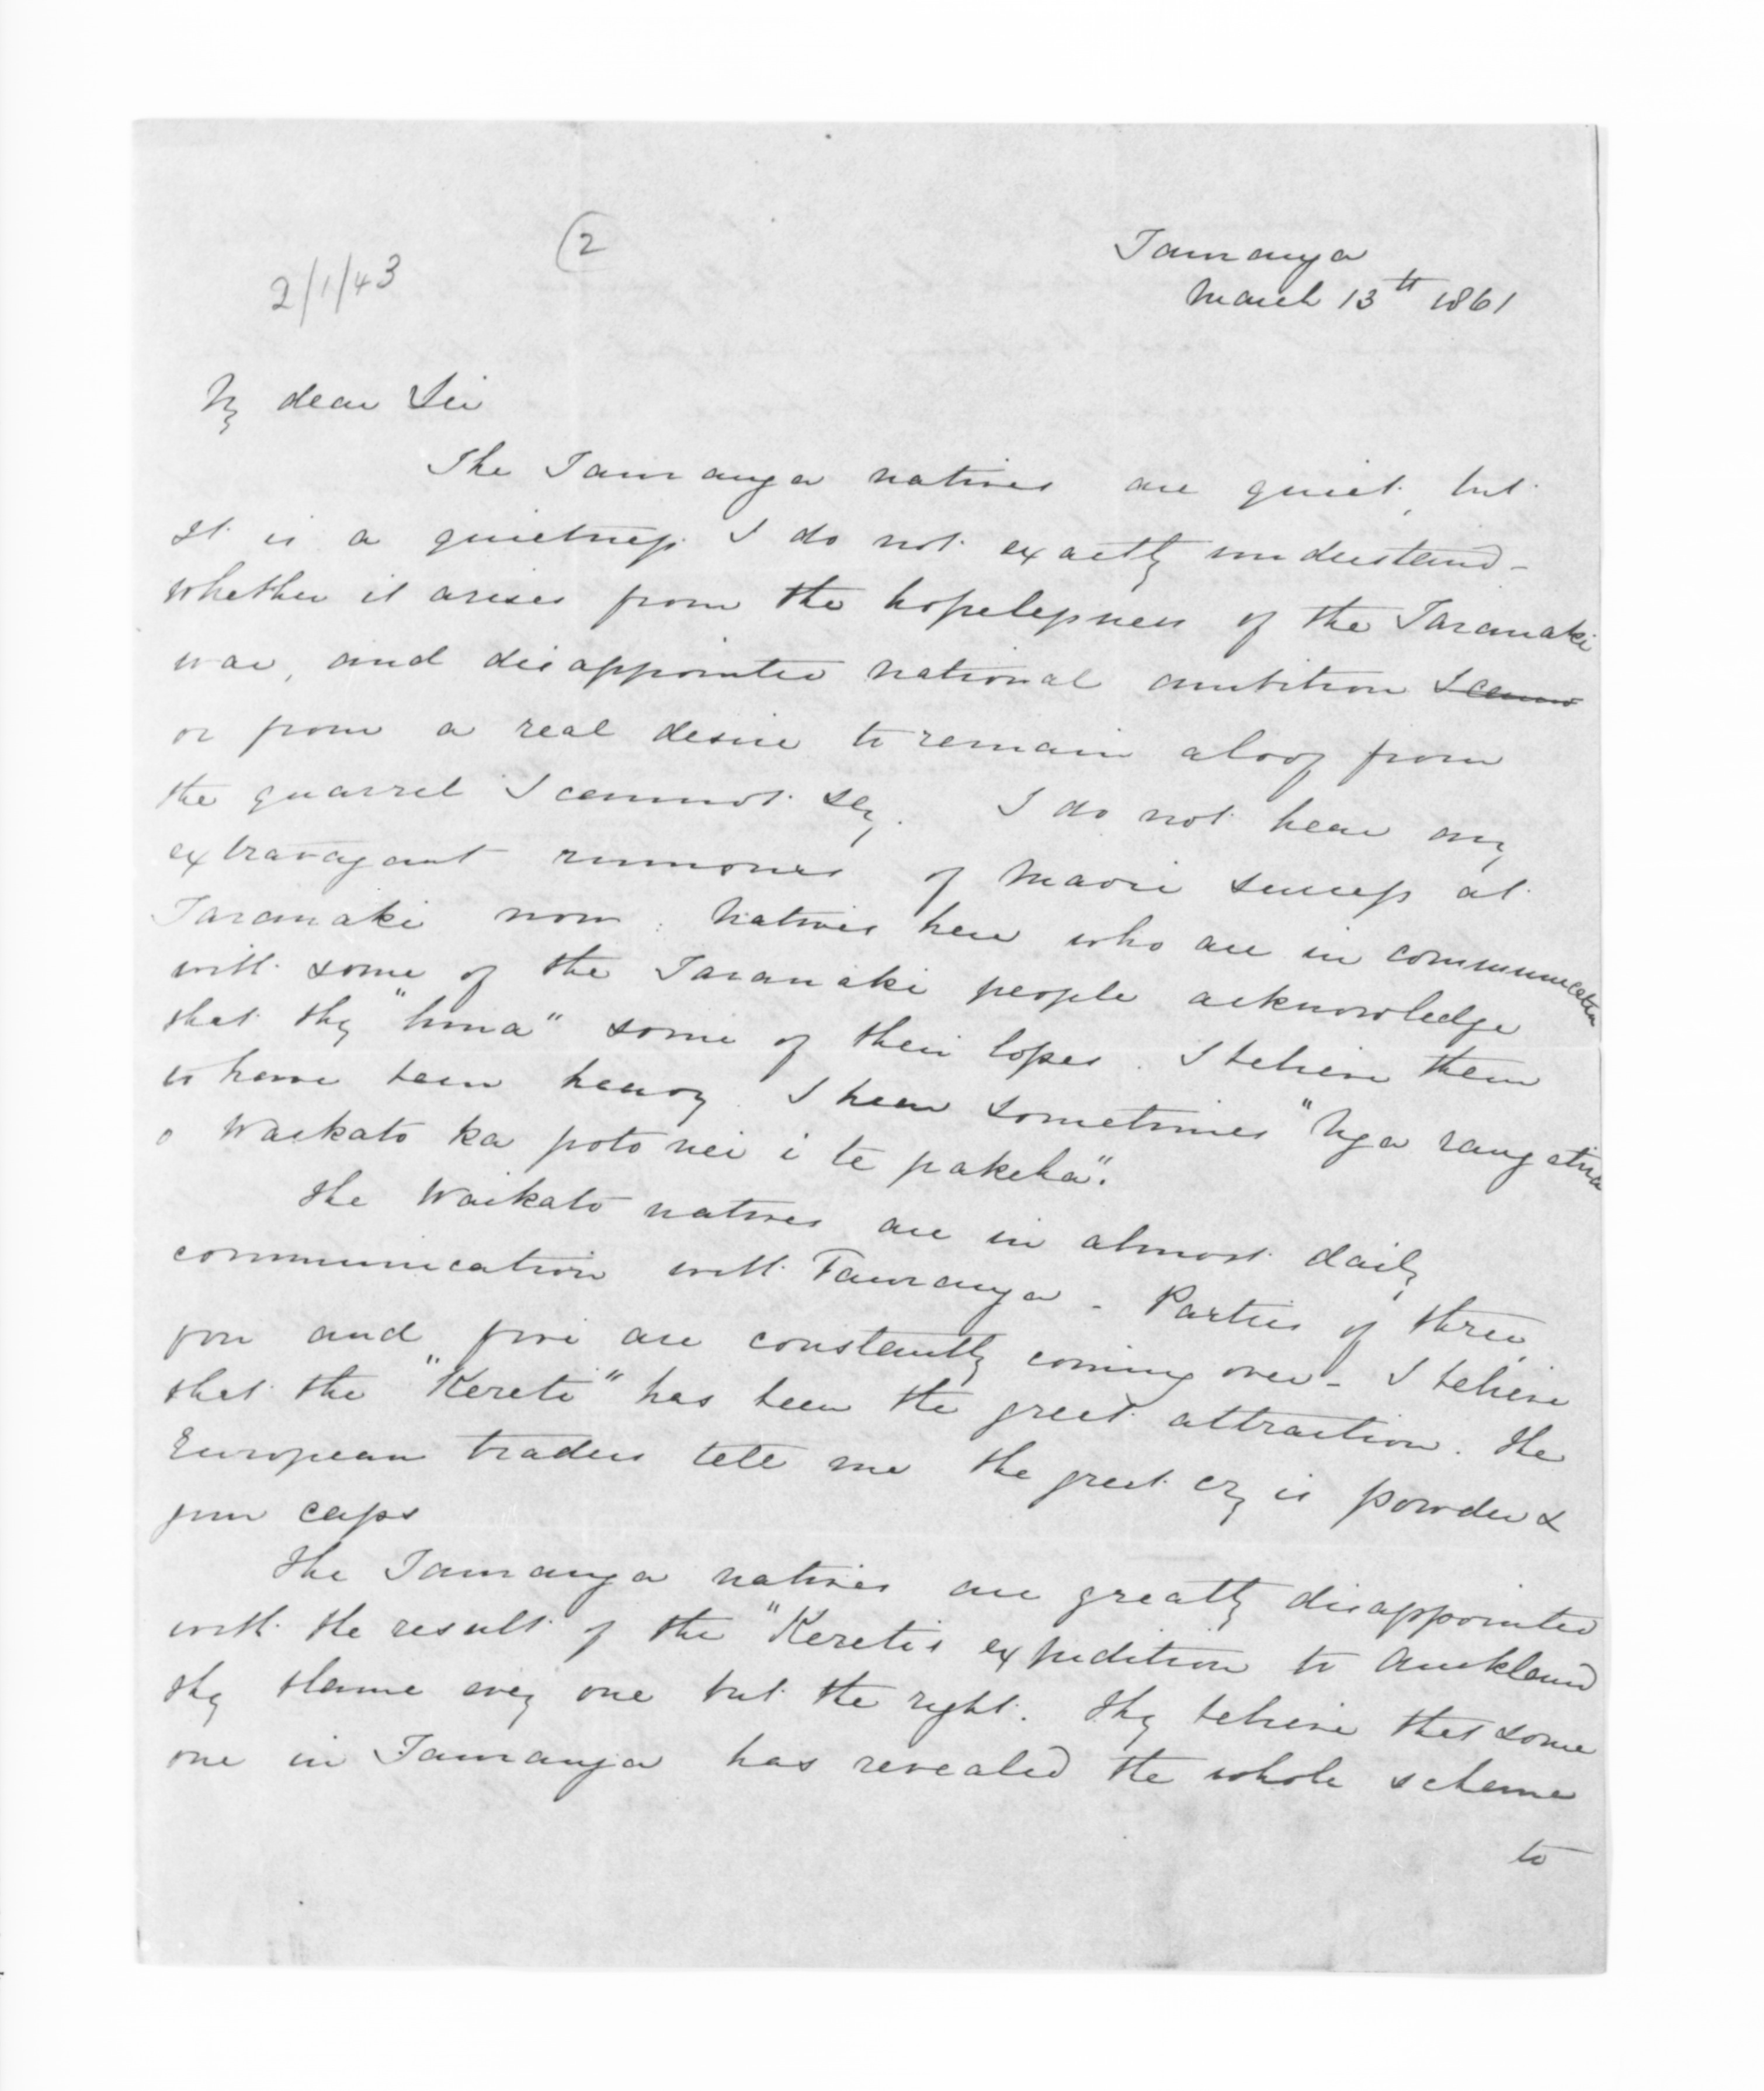 2/1/43
2
Tauranga
March 13th 1861
My dear Sir
The Tauranga natives are quiet, but
it is a quietness I do not exactly understand -
whether it arises from the hopelessness of the Taranaki
war, and disappointed national ambition
or from a real desire to remain aloof from
the quarrel I cannot say. I do not hear any
extravagant rumours of Maori success at
Taranaki now. Natives here who are in communication
with some of the Taranaki people acknowledge
that they "huna" some of their losses. I believe them
to have been heavy. I hear sometimes "Nga rangatira
o Waikato ka poto nei i te pakeha".
The Waikato natives are in almost daily
communication with Tauranga - Parties of three,
four and five are constantly coming over - I believe
that the "Kereti" has been the great attraction. The
European traders tell me the great cry is powder &
gun caps
The Tauranga natives are greatly disappointed
with the result of the "Kereti's expedition to Auckland
they blame every one but the right. They believe that some
one in Tauranga has revealed the whole scheme
to